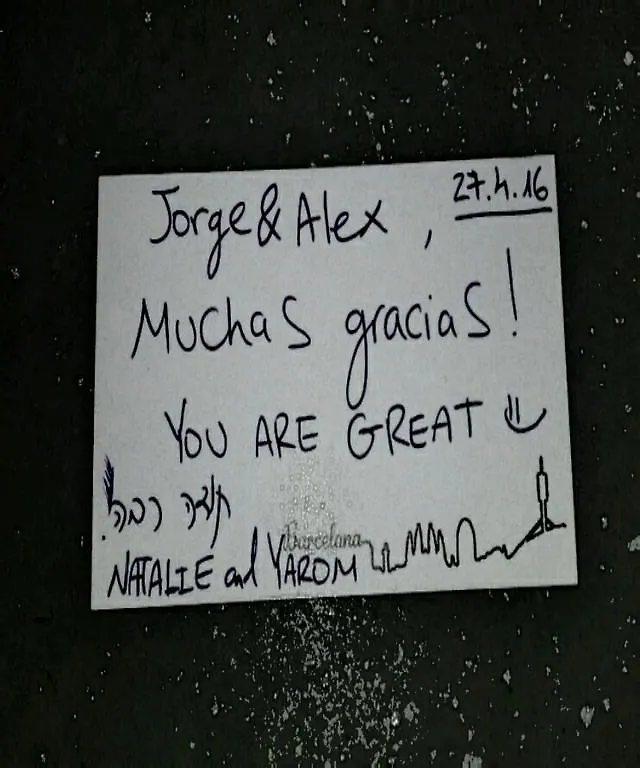 Jorge & Alex , 27.4.16
Muchas gracias!
YOU ARE GREAT
תודה רבה!
Barcelona
NATALIE and YAROM